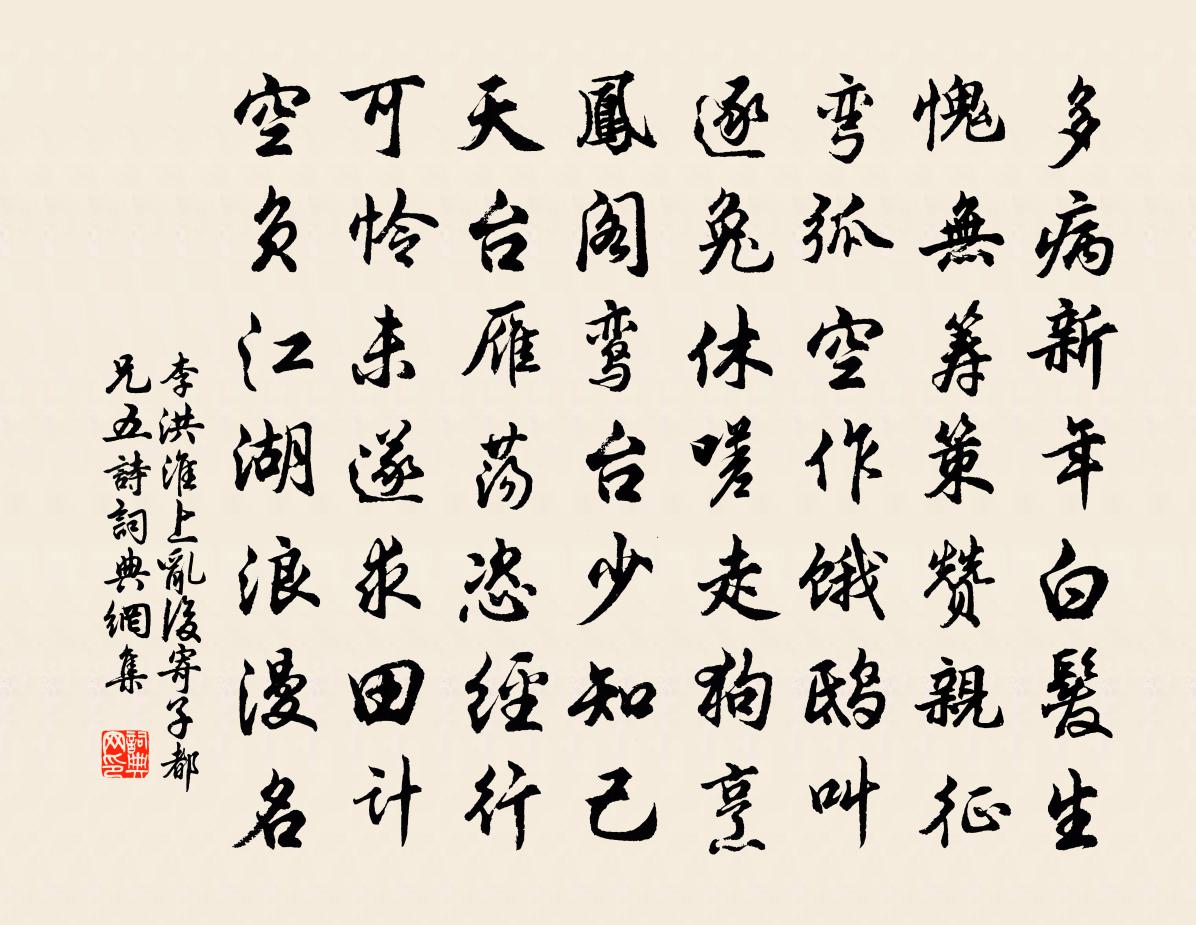 多病新年白髮生
愧無籌策贊親征
弯弧空作饿鴟叫
逐兔休嗟走狗烹
鳳阁鸾台少知己
天台雁荡恣經行
可怜未遂求田计
空负江湖浪漫名
李洪淮上亂後寄子都
兄五詩詞典網集
詞典网印